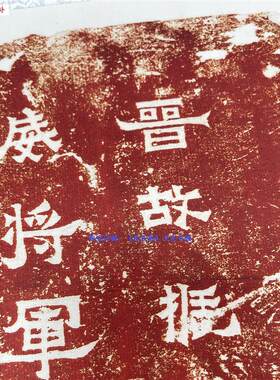 晉故振
威將軍